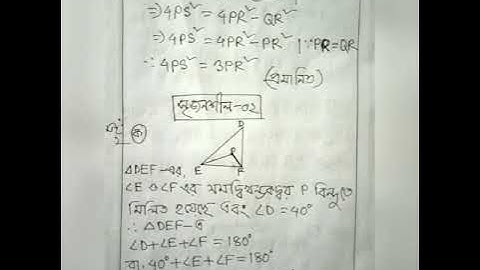 ⇒4PS² = 4PR² - QR²
⇒4PS² = 4PR² - PR² [∵PR=QR
∴ 4PS² = 3PR²
(প্রমাণিত)
সৃজনশীল-০২
ক
D
P
E F
ΔDEF-এর,
∠E ও ∠F এর সমদ্বিখন্ডকদ্বয় P বিন্দুতে
মিলিত হয়েছে এবং ∠D = 40°
∴ ΔDEF-এ
∠D+∠E+∠F = 180°
বা, 40°+∠E+∠F = 180°